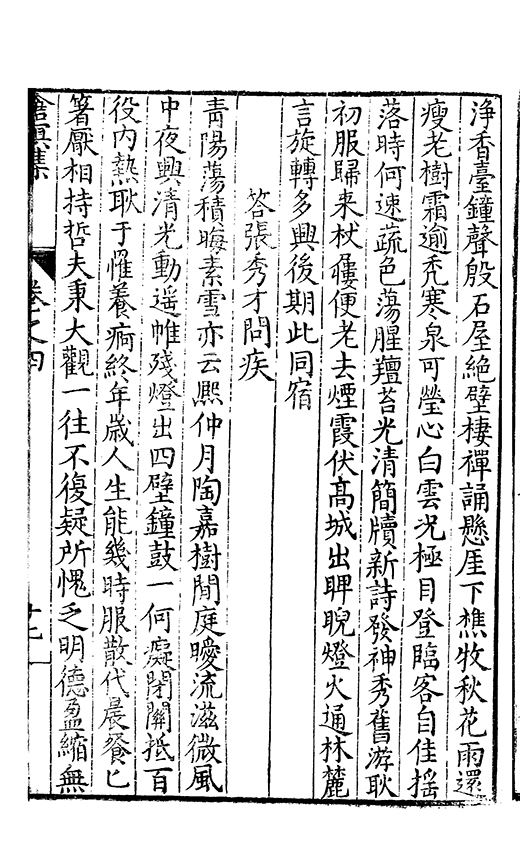 浄香臺鐘聲殷石屋絶壁棲禪誦懸厓下樵牧秋花雨還
瘦老樹霜逾禿寒泉可瑩心白雲況極目登臨客自佳揺
落時何速蔬色蕩腥羶苔光清簡牘新詩發神秀舊游耿
初服歸来杖屨便老去煙霞伏高城出睥睨燈火通林麓
言旋轉多興後期此同宿
荅張秀才問疾
青陽蕩積晦素雪亦云熈仲月陶嘉樹閒庭曖流滋微風
中夜興清光動遥帷殘燈出四壁鐘鼓一何癡閉關抵百
役内熱耿于懼養痾終年歲人生能幾時服散代晨餐匕
箸厭相持哲夫秉大觀一往不復疑所愧乏明德盈縮無
滄溟集
卷之四